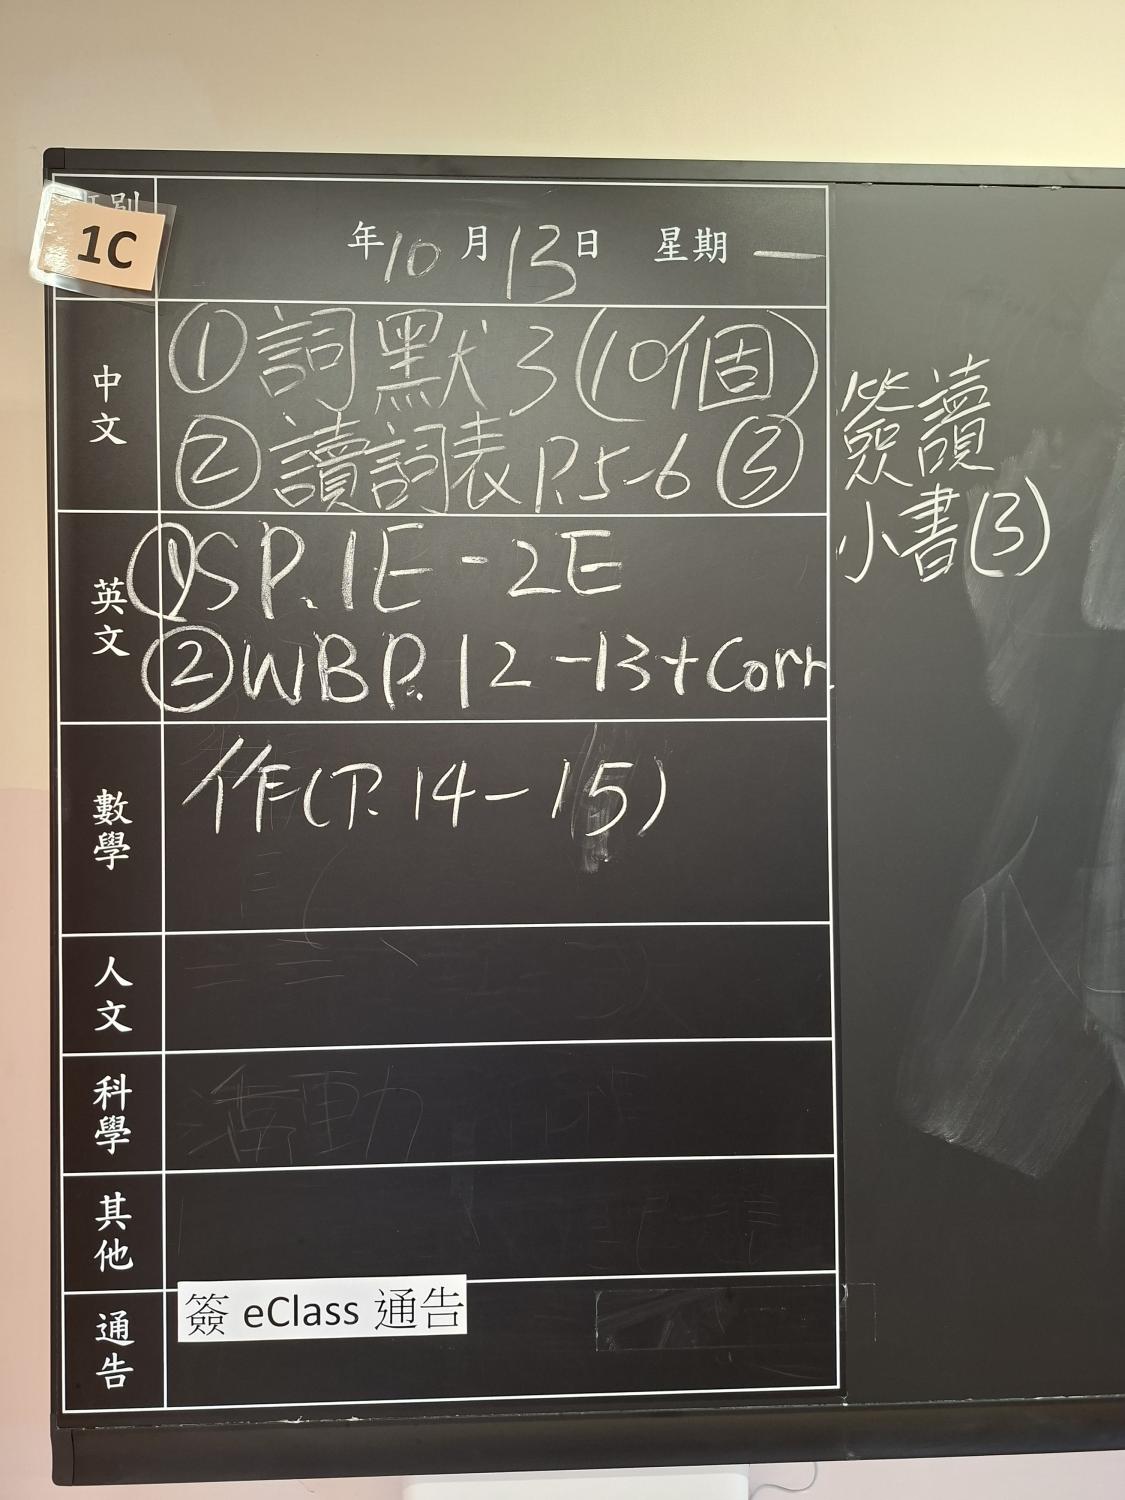 1C
年10月13日 星期一
中文
①詞默3(10個)
②讀詞表P.5-6 ③簽讀小書(3)
英文
①SP.1E-2E
②WBP.12-13+Corr.
數學
作(P.14-15)
人文
科學
活動
其他
通告
簽 eClass 通告